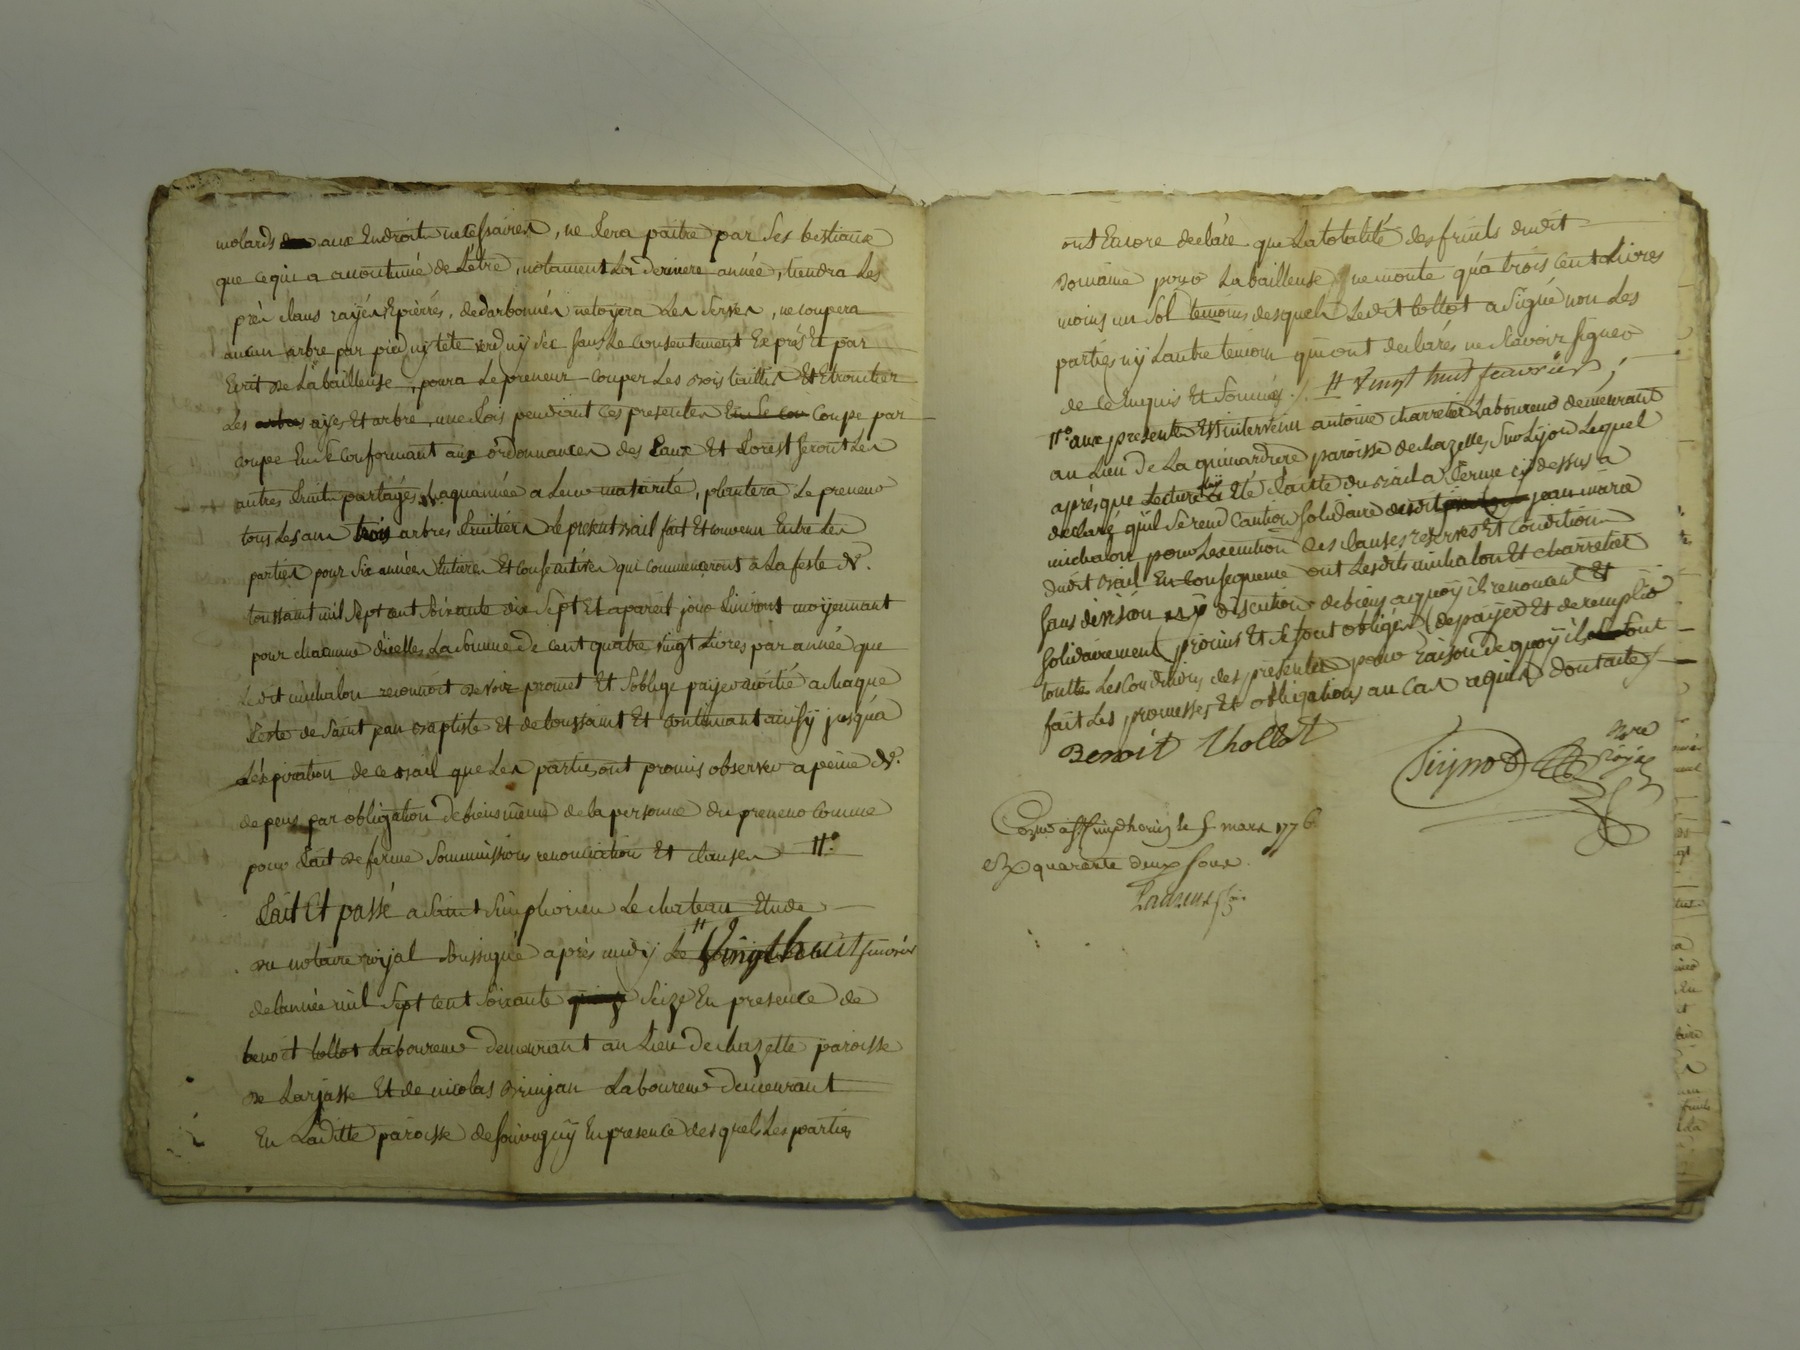 molards aux Endroits necessaires, ne fera paître par ses bestiaux
que ce qui a acoutumé de L'être, notament La derniere année, tiendra Les
près clans rayés Epierrés, dedarbonnés netoyera Les serves, ne coupera
aucun arbre par pied ny tête verd ny sec sans Le consentement Exprés Et par
Ecrit de La bailleuse, poura Le preneur couper Les bois taillis Et Etrontier
Les ayes Et arbre une fois pendant ces presentes Coupe par
coupe En se conformant aux ordonnances des Eaux Et forest seront Les
autres fruits partagés chaquannée a Leur maturité, plantera Le preneur
tous Les ans trois arbres fruitiers le present bail fait Et convenu Entre Les
parties pour six années Entieres Et consecutives qui commencerons à La feste d.
toussaint mil sept cent soixante dix sept Et a pareil jour finiront moÿennant
pour chacunne d'icelles La somme de cent quatre vingt Livres par année que
Ledit michalon reconnoit devoir promet Et s'oblige paÿer moitié a chaque
feste de saint jean baptiste Et de toussaint Et continuant ainsÿ jusqu'a
L'éxpiration de ce bail que Les parties ont promis observer a peine d.
depens par obligation de biens même de la personne du preneur comme
pour fait de ferme soummissions renonciation Et clauses #.
fait Et passé a Saint Simphorien Le chateau Etude
du notaire roÿal soussigné après midy Le # Vingt huit fevrier
de L'année mil sept cent soixante seize En presence de
benoit tollot Laboureur demeurant au Lieu de chazette paroisse
de Larjasse Et de nicolas Laboureur demeurant
En Laditte paroisse de En presence desquels Les parties
ont Encore declaré que La totalité des fruits dudit
Domaine pour La bailleuse ne monte qu'a trois cent Livres
moins un sol temoins desquels Ledit tollot a signé non Les
parties nÿ Lautre temoin qui ont declarés ne sçavoir signer
de ce Enquis Et sommés. # Vingt huit fevrier;
#. aux presentes Est intervenu antoine charretier Laboureur demeurant
au Lieu de La guimardiere paroisse de chazelles sur Lyon Lequel
apres que Lecture Luÿ a Eté faitte du bail a ferme cy dessus a
declaré qu'il se rend Caution solidaire dudit jean marie
michalon pour Lexecution des clauses reserves Et condition
dudit bail En consequence ont Lesdits michalon Et charretier
sans division nÿ discution de biens a quoÿ ils renoncent Et
solidairement promis Et se sont obligés de payer Et de remplir
toutte Les conditions des presentes pour raison de quoÿ ils ont
fait Les promesses Et obligations au cas requis dont acte
Benoit thollot
Nre
roÿal
le 5 mars 1776
quarante deux sous